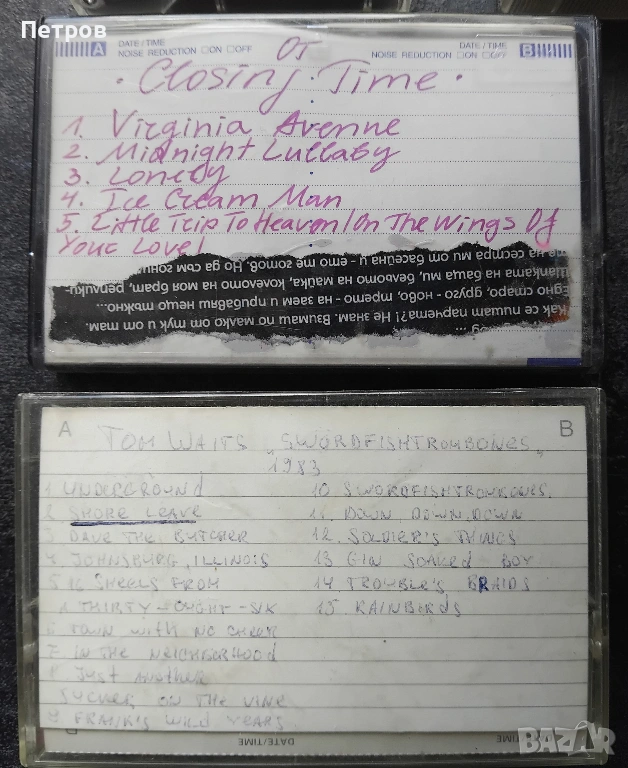 Петров
A DATE / TIME NOISE REDUCTION □ON □OFF
ОТ
DATE / TIME NOISE REDUCTION □ON □OFF B
· Closing Time ·
1. Virginia Avenne
2. Midnight Lullaby
3. Lonely
4. Ice Cream Man
5. Little Trip To Heaven (On The Wings Of
Your Love)
Как се пишат парчета?! Не знам. Взимаш по малко от тук и от там.
Едно старо, друго - ново, трето - на заем и прибавяш нещо тъжно...
Шапката на баща ми, бельото на майка, колелото на моя брат,
на сестра ми от басейна и - ето те готов. Но да съм
A B
TOM WAITS „SWORDFISHTROMBONES„
1983
1 UNDERGROUND
2 SHORE LEAVE
3 DAVE THE BUTCHER
4 JOHNSBURG, ILLINOIS
5 16 SHELLS FROM
A THIRTY-OUGHT-SIX
6 TOWN WITH NO CHEER
7 IN THE NEIGHBORHOOD
8 JUST ANOTHER
SUCKER ON THE VINE
9 FRANK'S WILD YEARS
10 SWORDFISHTROMBONES
11. DOWN DOWN, DOWN
12. SOLDIER'S THINGS
13. GIN SOAKED BOY
14 TROUBLE'S BRAIDS
15 RAINBIRDS
DATE/TIME
BAZAR